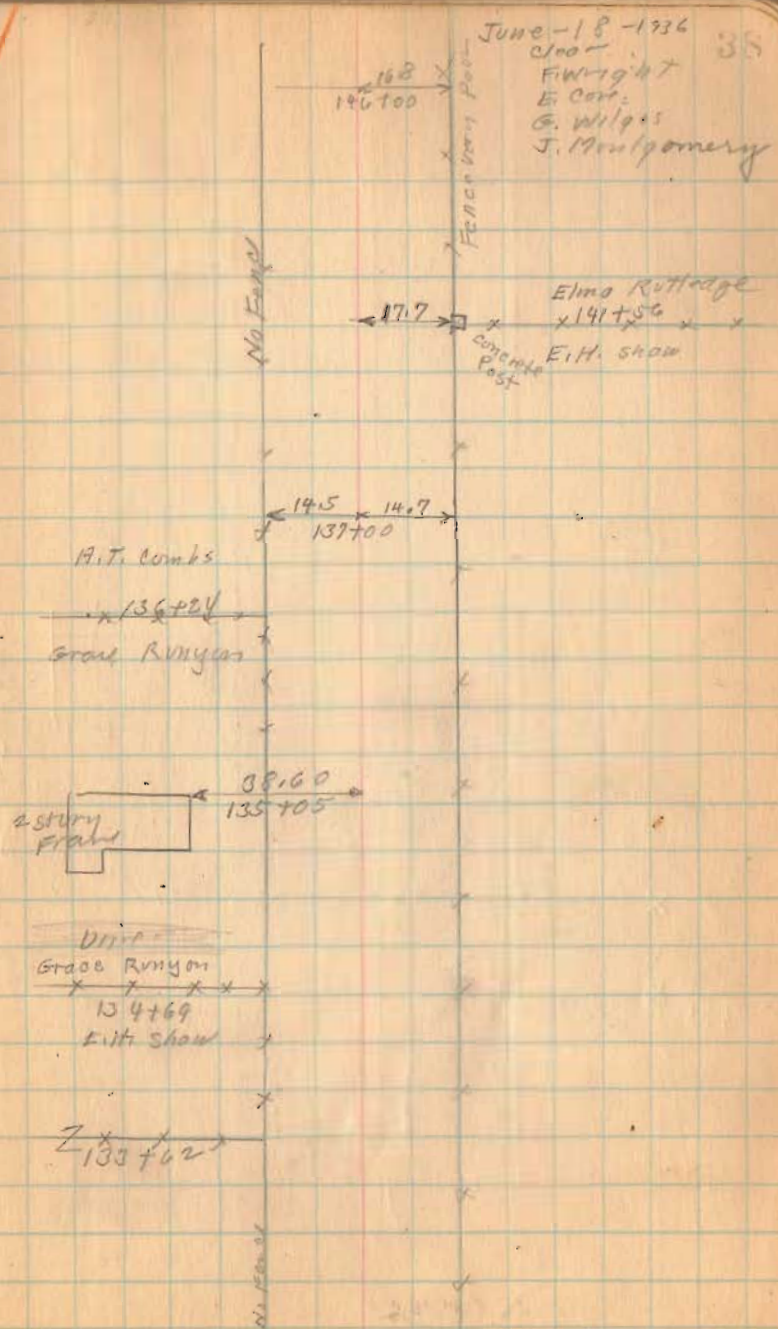 June-18-1936
38
Cloo-
F. Wright
E. Cox.
G. Wilgis
J. Montgomery
16.8
146+00
Fence very Poor
No Fence
17.7
Elmo Rutledge
141+56
E.H. Show
concrete
Post
14.5 14.7
137+00
A.T. Combs
136+24
Grace Runyon
38.60
135+05
2 story
Frame
Drive
Grace Runyon
134+69
E.H. Show
133+62
No Fence